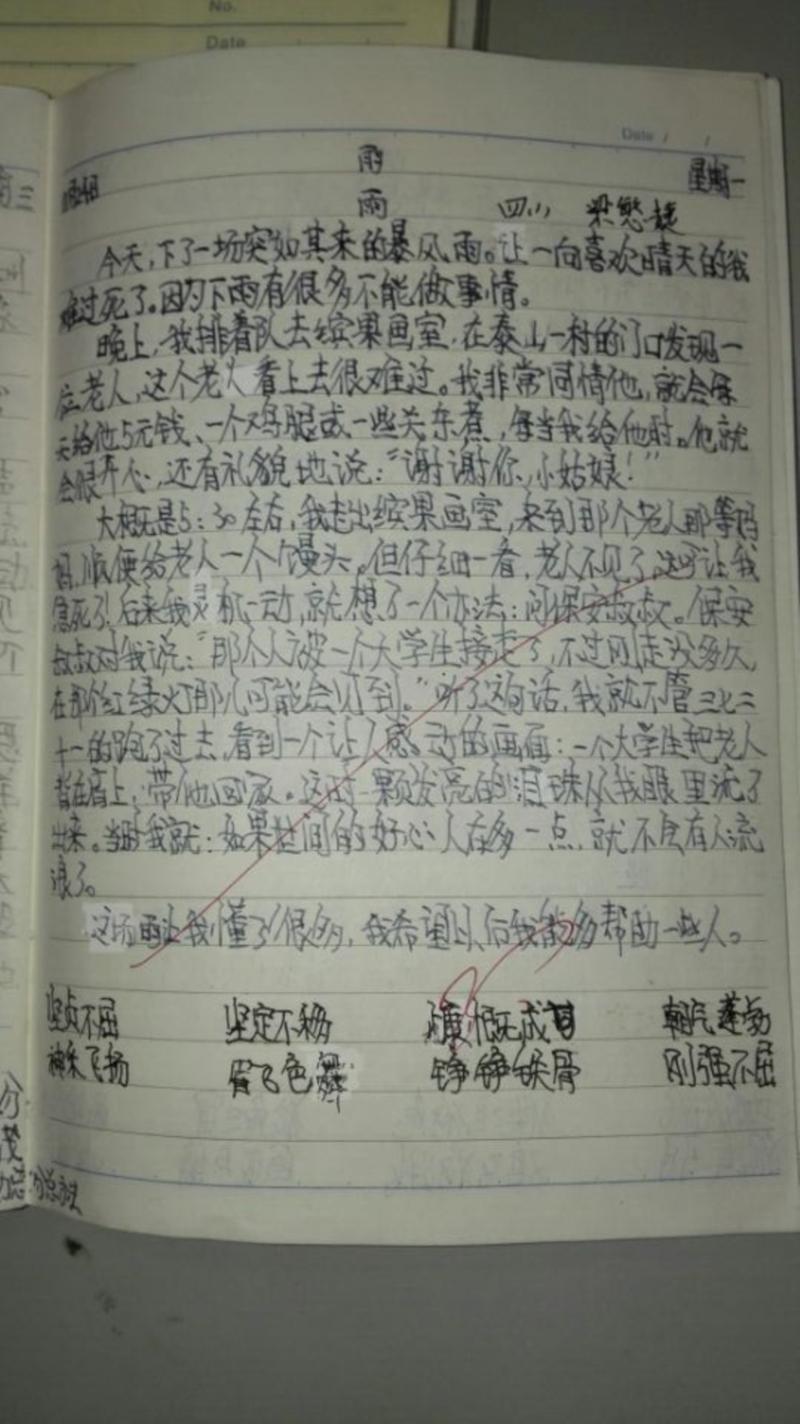 No.
Date
Date / /
雨
星期一
雨 四(1) 梁慜
今天,下了一场突如其来的暴风雨。让一向喜欢晴天的我
难过死了。因为下雨有很多不能做事情。
晚上,我排着队去缤果画室,在泰山一村的门口发现一
位老人,这个老人看上去很难过。我非常同情他,就会每
天给他5元钱、一个鸡腿或一些关东煮,每当我给他时。他就
会很开心,还有礼貌地说:“谢谢你,小姑娘!”
大概是5:30左右,我走出缤果画室,来到那个老人那等妈
妈,顺便给老人一个馒头。但仔细一看,老人不见了,这可让我
急死了!后来我灵机一动,就想了一个办法:问保安叔叔。保安
叔叔对我说:“那个人被一个大学生接走了,不过刚走没多久,
在那个红绿灯那儿可能会见到。”听了这句话,我就不管三七二
十一的跑了过去,看到一个让人感动的画面:一个大学生把老人
背在肩上,带他回家。这时一颗发亮的泪珠从我眼里流了
出来。当时我就:如果世间的好心人在多一点,就不会有人流
浪了。
这场雨让我懂了很多,我希望以后我能多帮助一些人。
坚贞不屈 坚定不移 慷慨 朝气蓬勃
神采飞扬 眉飞色舞 铮铮铁骨 刚强不屈